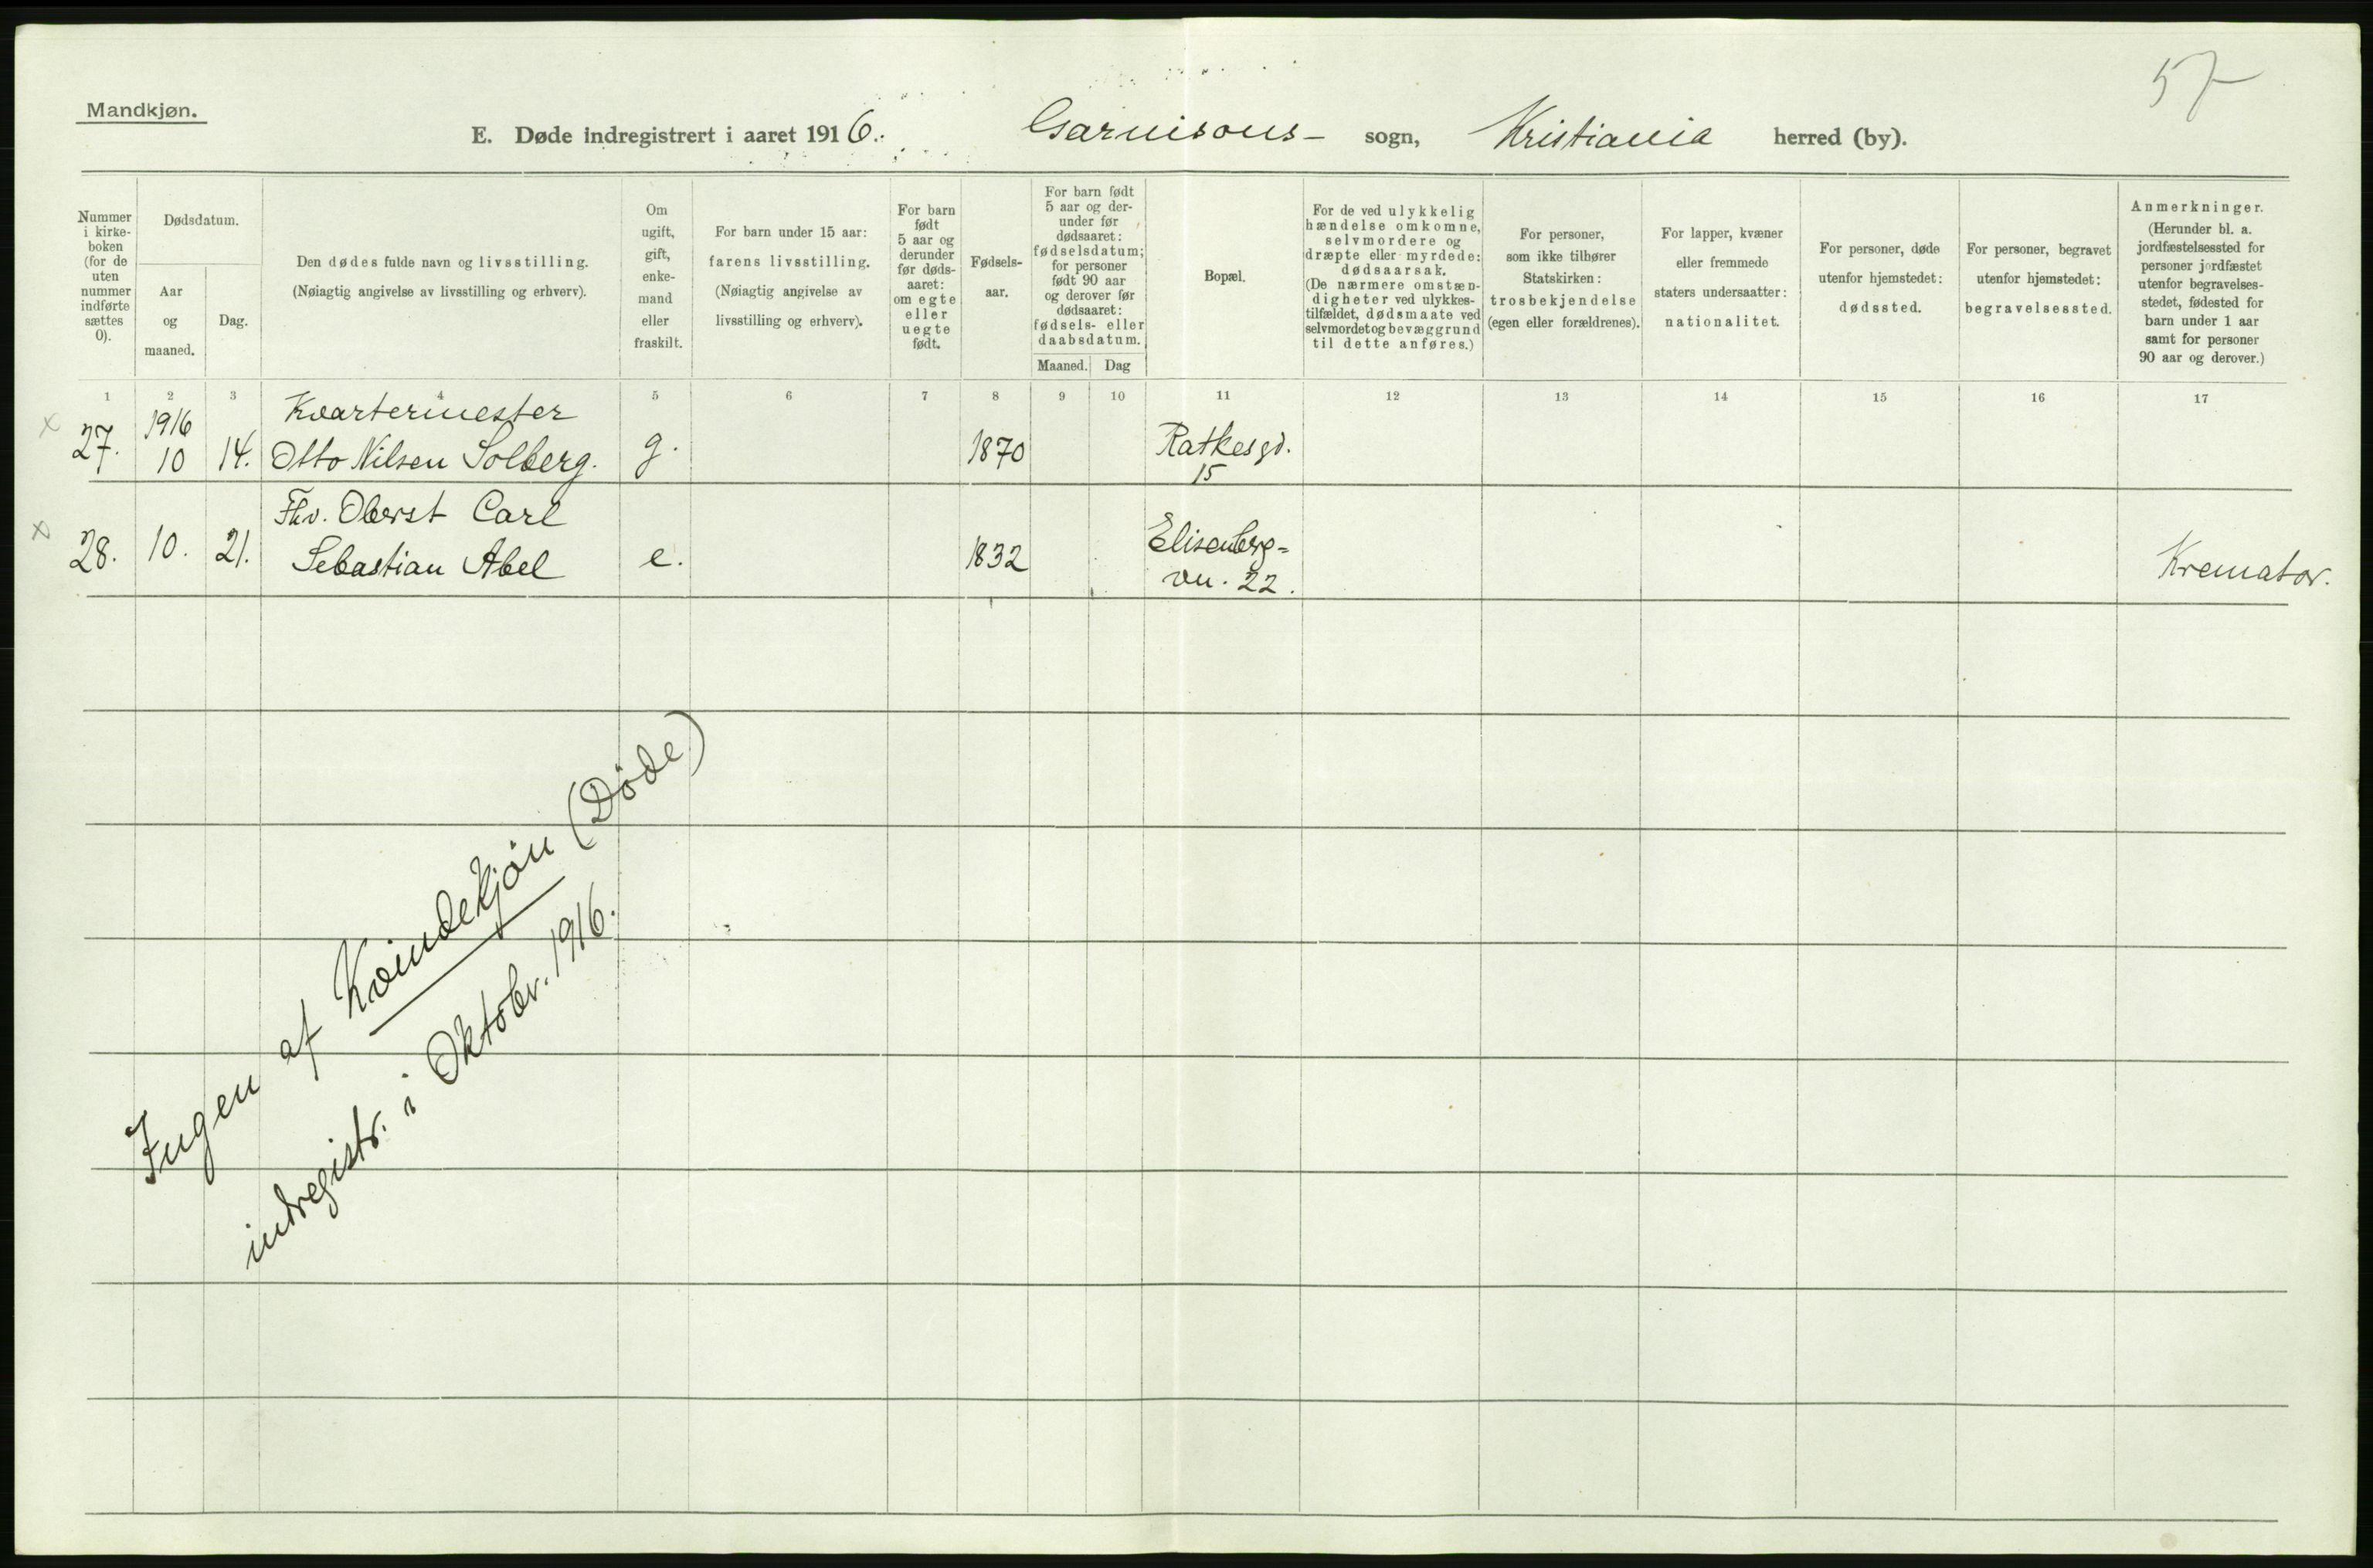 57
Mandkjøn.
E. Døde indregistrert i aaret 1916. Garnisons- sogn, Kristiania herred (by).
Nummer i kirke-boken (for de uten nummer indførte sættes 0).
Dødsdatum.
Aar og maaned.
Dag.
Den dødes fulde navn og livsstilling.
(Nøiagtig angivelse av livsstilling og erhverv).
Om ugift, gift, enke-mand eller fraskilt.
For barn under 15 aar: farens livsstilling.
(Nøiagtig angivelse av livsstilling og erhverv).
For barn født 5 aar og derunder før døds-aaret: om egte eller uegte født.
Fødsels-aar.
For barn født 5 aar og der-under før dødsaaret: fødselsdatum; for personer født 90 aar og derover før dødsaaret: fødsels- eller daabsdatum.
Maaned. Dag
Bopæl.
For de ved ulykkelig hændelse omkomne, selvmordere og dræpte eller myrdede: dødsaarsak.
(De nærmere omstæn-digheter ved ulykkes-tilfældet, dødsmaate ved selvmordet og bevæggrund til dette anføres.)
For personer, som ikke tilhører Statskirken: trosbekjendelse (egen eller forældrenes).
For lapper, kvæner eller fremmede staters undersaatter: nationalitet.
For personer, døde utenfor hjemstedet: dødssted.
For personer, begravet utenfor hjemstedet: begravelsessted.
Anmerkninger.
(Herunder bl. a. jordfæstelsessted for personer jordfæstet utenfor begravelses-stedet, fødested for barn under 1 aar samt for personer 90 aar og derover.)
1 2 3 4 5 6 7 8 9 10 11 12 13 14 15 16 17
x 27. 1916 10 14. Kvartermester Otto Nilsen Solberg. g. 1870 Ratkesgd. 15
x 28. 10. 21. Fhv. Oberst Carl Sebastian Abel e. 1832 Elisenberg=vn. 22. Kremator.
Ingen af Kvindekjøn (Døde)
indregistr. i Oktobr. 1916.